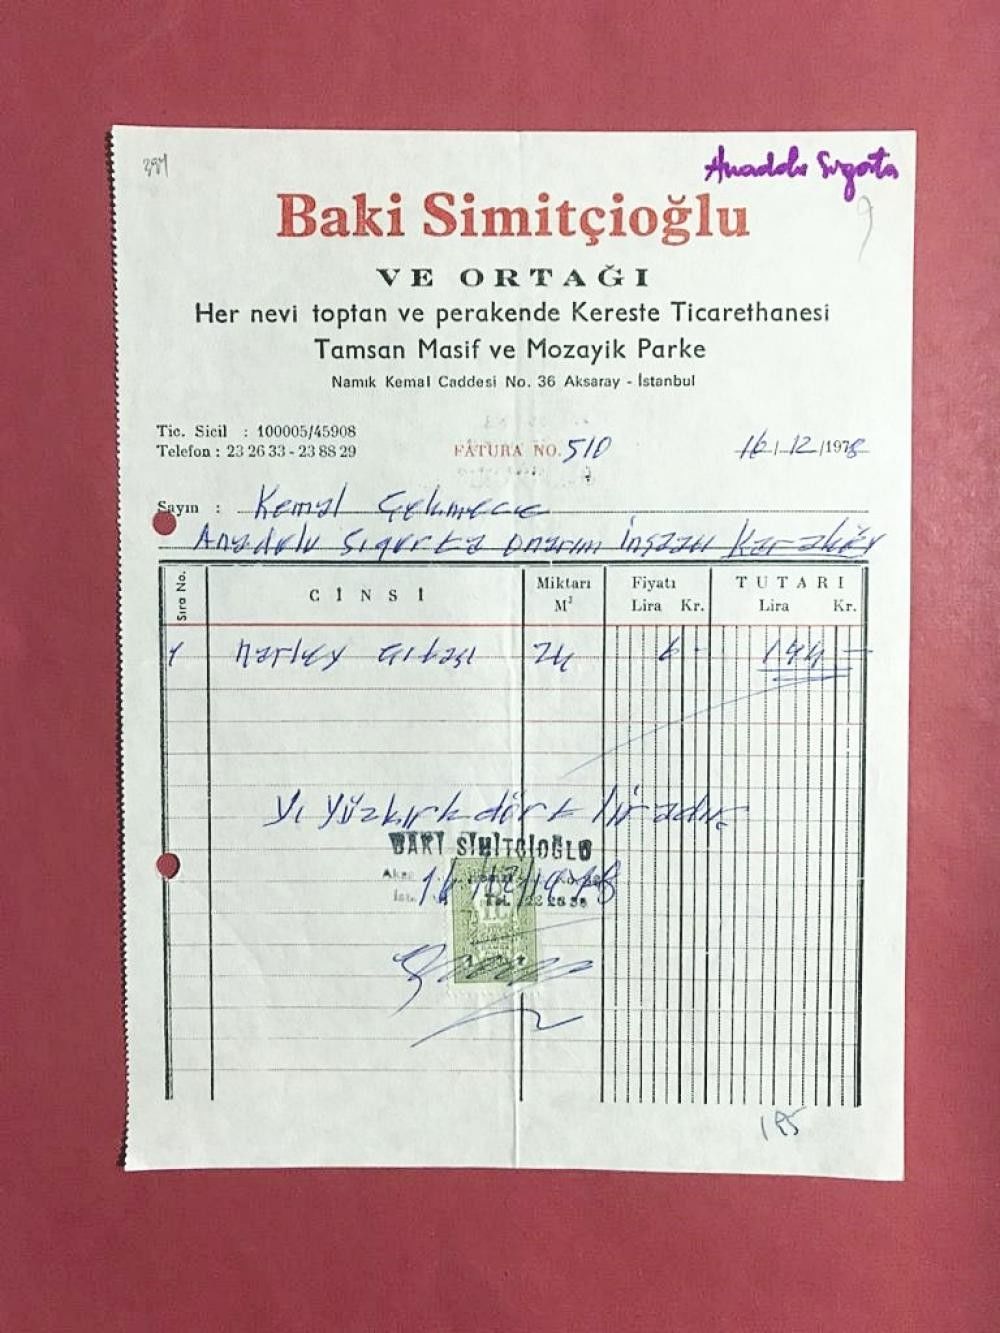 387
Anadolu Sigorta
Baki Simitçioğlu
VE ORTAĞI
Her nevi toptan ve perakende Kereste Ticarethanesi
Tamsan Masif ve Mozayik Parke
Namık Kemal Caddesi No. 36 Aksaray - İstanbul
Tic. Sicil : 100005/45908
Telefon : 23 26 33 - 23 88 29
FATURA NO. 510
16/12/1978
Sayın : Kemal Çekmece
Anadolu Sigorta onarım İnşaatı Karaköy
Sıra No. CİNSİ Miktarı M² Fiyatı Lira Kr. TUTARI Lira Kr.
1 Marley çıtası 24 6 - 144 -
Yı Yüzkırk dört liradır.
BAKİ SİMİTÇİOĞLU
16/12/1978
195